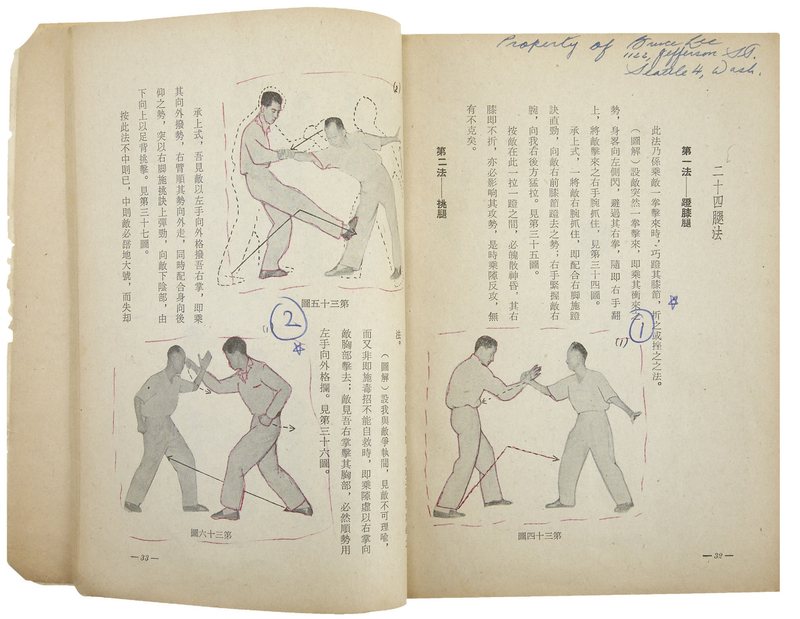 Property of Bruce Lee
1122, Jefferson ST.
Seattle 4, Wash.
二十四腿法
第一法——蹬膝腿
此法乃係乘敵一拳擊來時,巧蹬其膝節,折之或挫之之法。
(圖解)設敵突然一拳擊來,即乘其衝來之
勢,身畧向左側閃,避過其右拳,隨即右手翻
上,將敵擊來之右手腕抓住,見第三十四圖。
承上式,一將敵右腕抓住,即配合右脚施蹬
訣直勁,向敵右前膝節蹬去之勢;右手緊握敵右
腕,向我右後方猛拉。見第三十五圖。
按敵在此一拉一蹬之間,必魄散神昏,其右
膝即不折,亦必影响其攻勢,是時乘隙反攻,無
有不克矣。
第二法——挑腿
1
(1)
第三十四圖
—32—
(2)
第三十五圖
法,
(圖解)設我與敵爭執間,見敵不可理喻,
而又非即施毒招不能自救時,即乘隙虛以右掌向
敵胸部擊去;敵見吾右掌擊其胸部,必然順勢用
左手向外格攔。見第三十六圖。
2
(1)
第三十六圖
承上式,吾見敵以左手向外格撥吾右掌,即乘
其向外撥勢,右臂順其勢向外走,同時配合身向後
仰之勢,突以右脚施挑訣上彈勁,向敵下陰部,由
下向上以足背挑擊。見第三十七圖。
按此法不中則已,中則敵必踣地大號,而失却
—33—